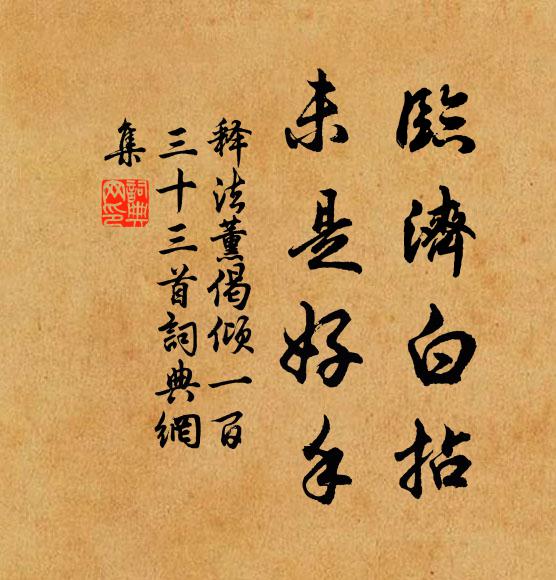 臨濟白拈
未是好手
释法薰偈傾一百
三十三首詞典網
集
詞典
网印